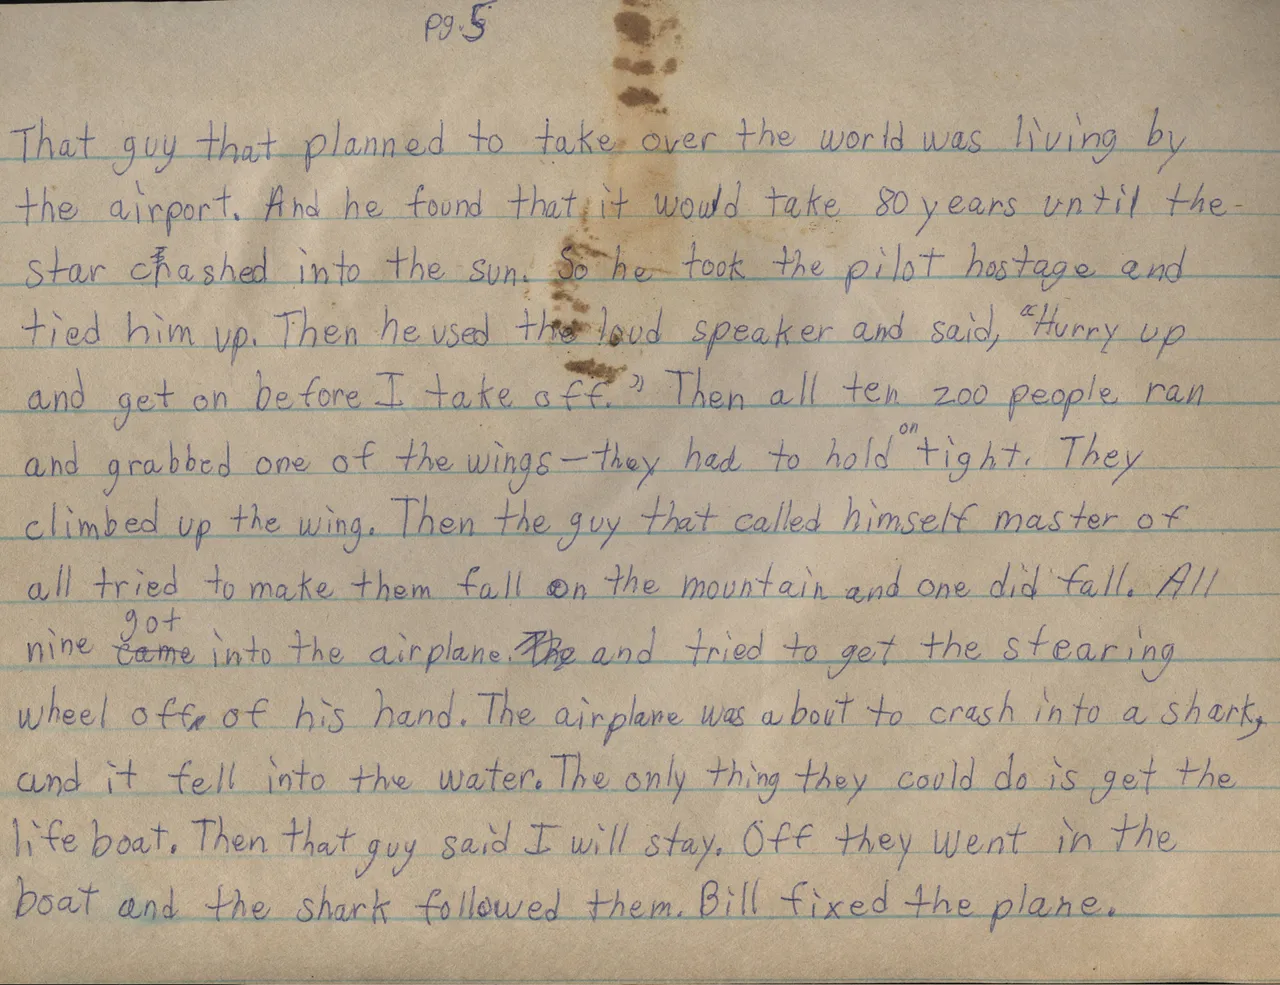 pg.5
That guy that planned to take over the world was living by
the airport. And he found that it would take 80 years until the
star crashed into the sun. So he took the pilot hostage and
tied him up. Then he used the loud speaker and said, "Hurry up
and get on before I take off." Then all ten 200 people ran
and grabbed one of the wings—they had to hold on tight. They
climbed up the wing. Then the guy that called himself master of
all tried to make them fall on the mountain and one did fall. All
nine came got into the airplane. The and tried to get the stearing
wheel off of his hand. The airplane was about to crash into a shark,
and it fell into the water. The only thing they could do is get the
life boat. Then that guy said I will stay. Off they went in the
boat and the shark followed them. Bill fixed the plane.